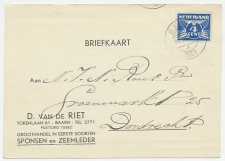 NEDERLAND
4
CENT
BRIEFKAART
Aan
Groenmarkt 25
Dordrecht
D. VAN DE RIET
TORENLAAN 61 - BAARN - TEL. 2771
GROOTHANDEL IN EERSTE SOORTEN
SPONSEN en ZEEMLEDER